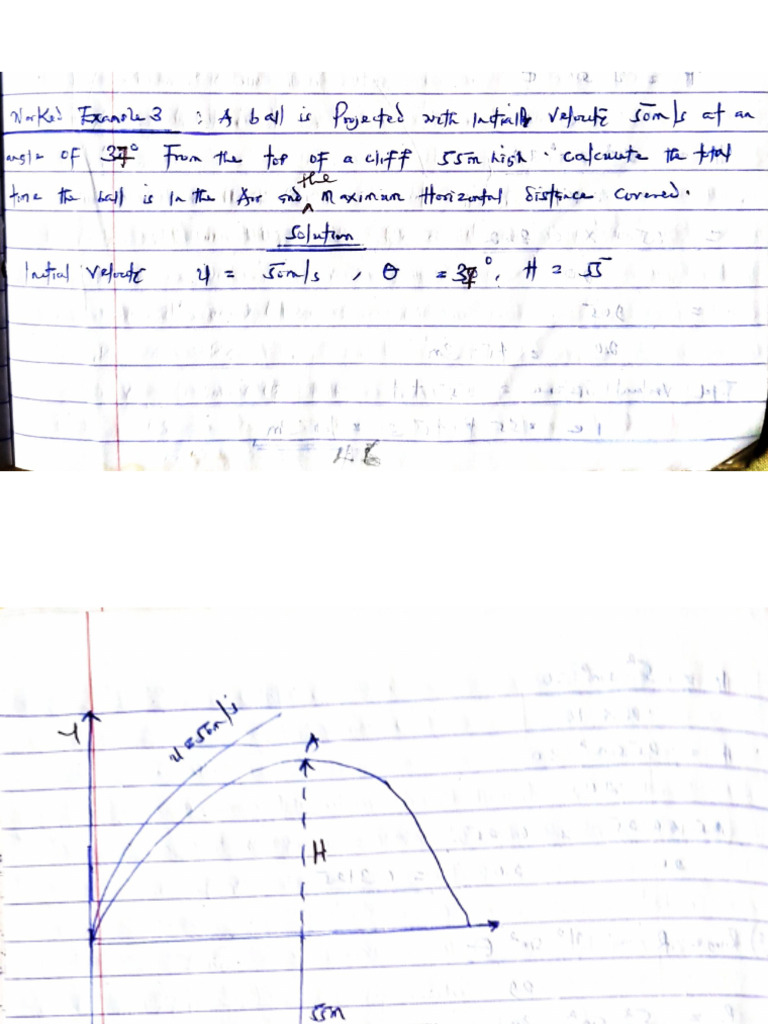 Worked Example 3 : A ball is Projected with Initially Velocity 50m/s at an
angle of 37° From the top of a cliff 55m high. calculate the total
time the ball is in the Air and the Maximum Horizontal distance covered.
Solution
Initial Velocity u = 50m/s , θ = 37°. H = 55
46
Y
u = 50m/s
A
H
55m